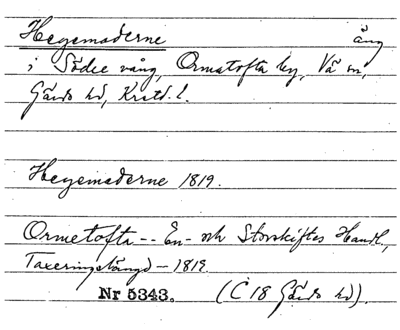 Hegemaderne äng
i Södre vång, Ormatofta by, Vä sn,
Gärds hd, Kristd. l.
Hegemaderne 1819.
Ormetofta -- En- och Storskiftes Handl.,
Taxeringslängd - 1819.
Nr 5343. (C 18 Gärds hd).